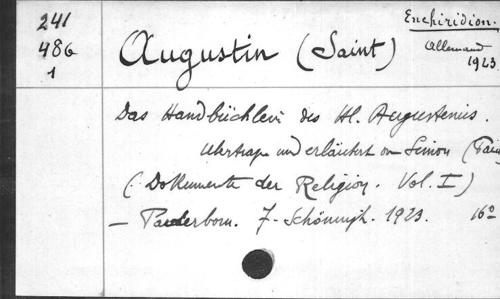 241
486
1
Enchiridion.
Allemand
1923
Augustin (Saint)
Das Handbüchlein des Hl. Augustinus.
und erläutert von Simon (Paul)
(Dokumente der Religion. Vol. I)
— Paderborn. F. Schöningh. 1923. 16º